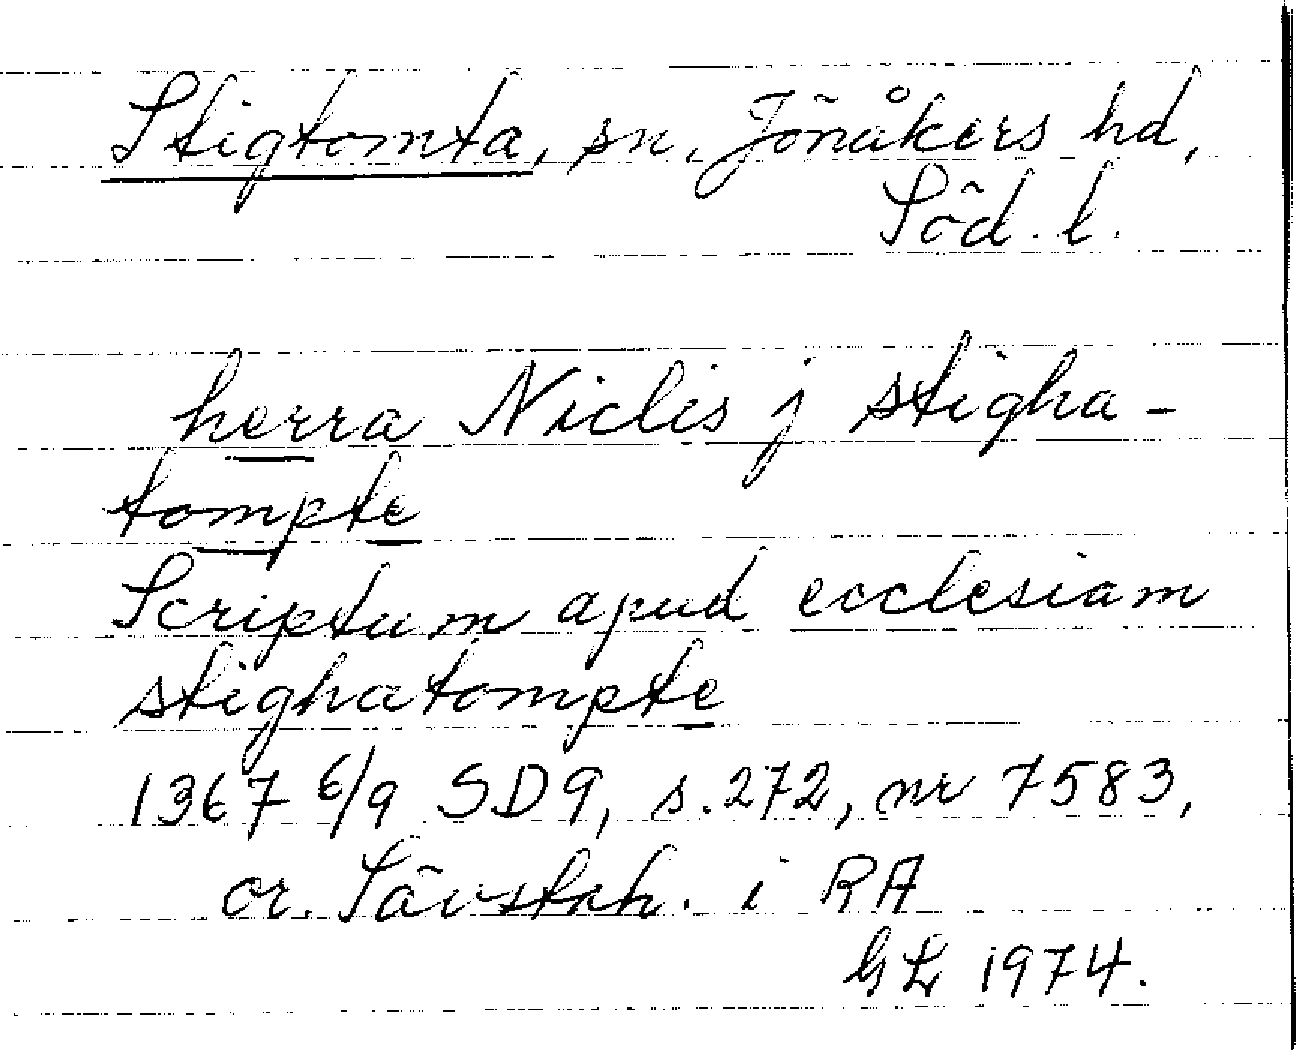 Stigtomta, sn, Jönåkers hd,
Söd. l.
herra Niclis j stigha-
tompte
Scriptum apud ecclesiam
stighatompte
1367 6/9 SD9, s.272, nr 7583,
or. Sävstah. i RA
GL 1974.